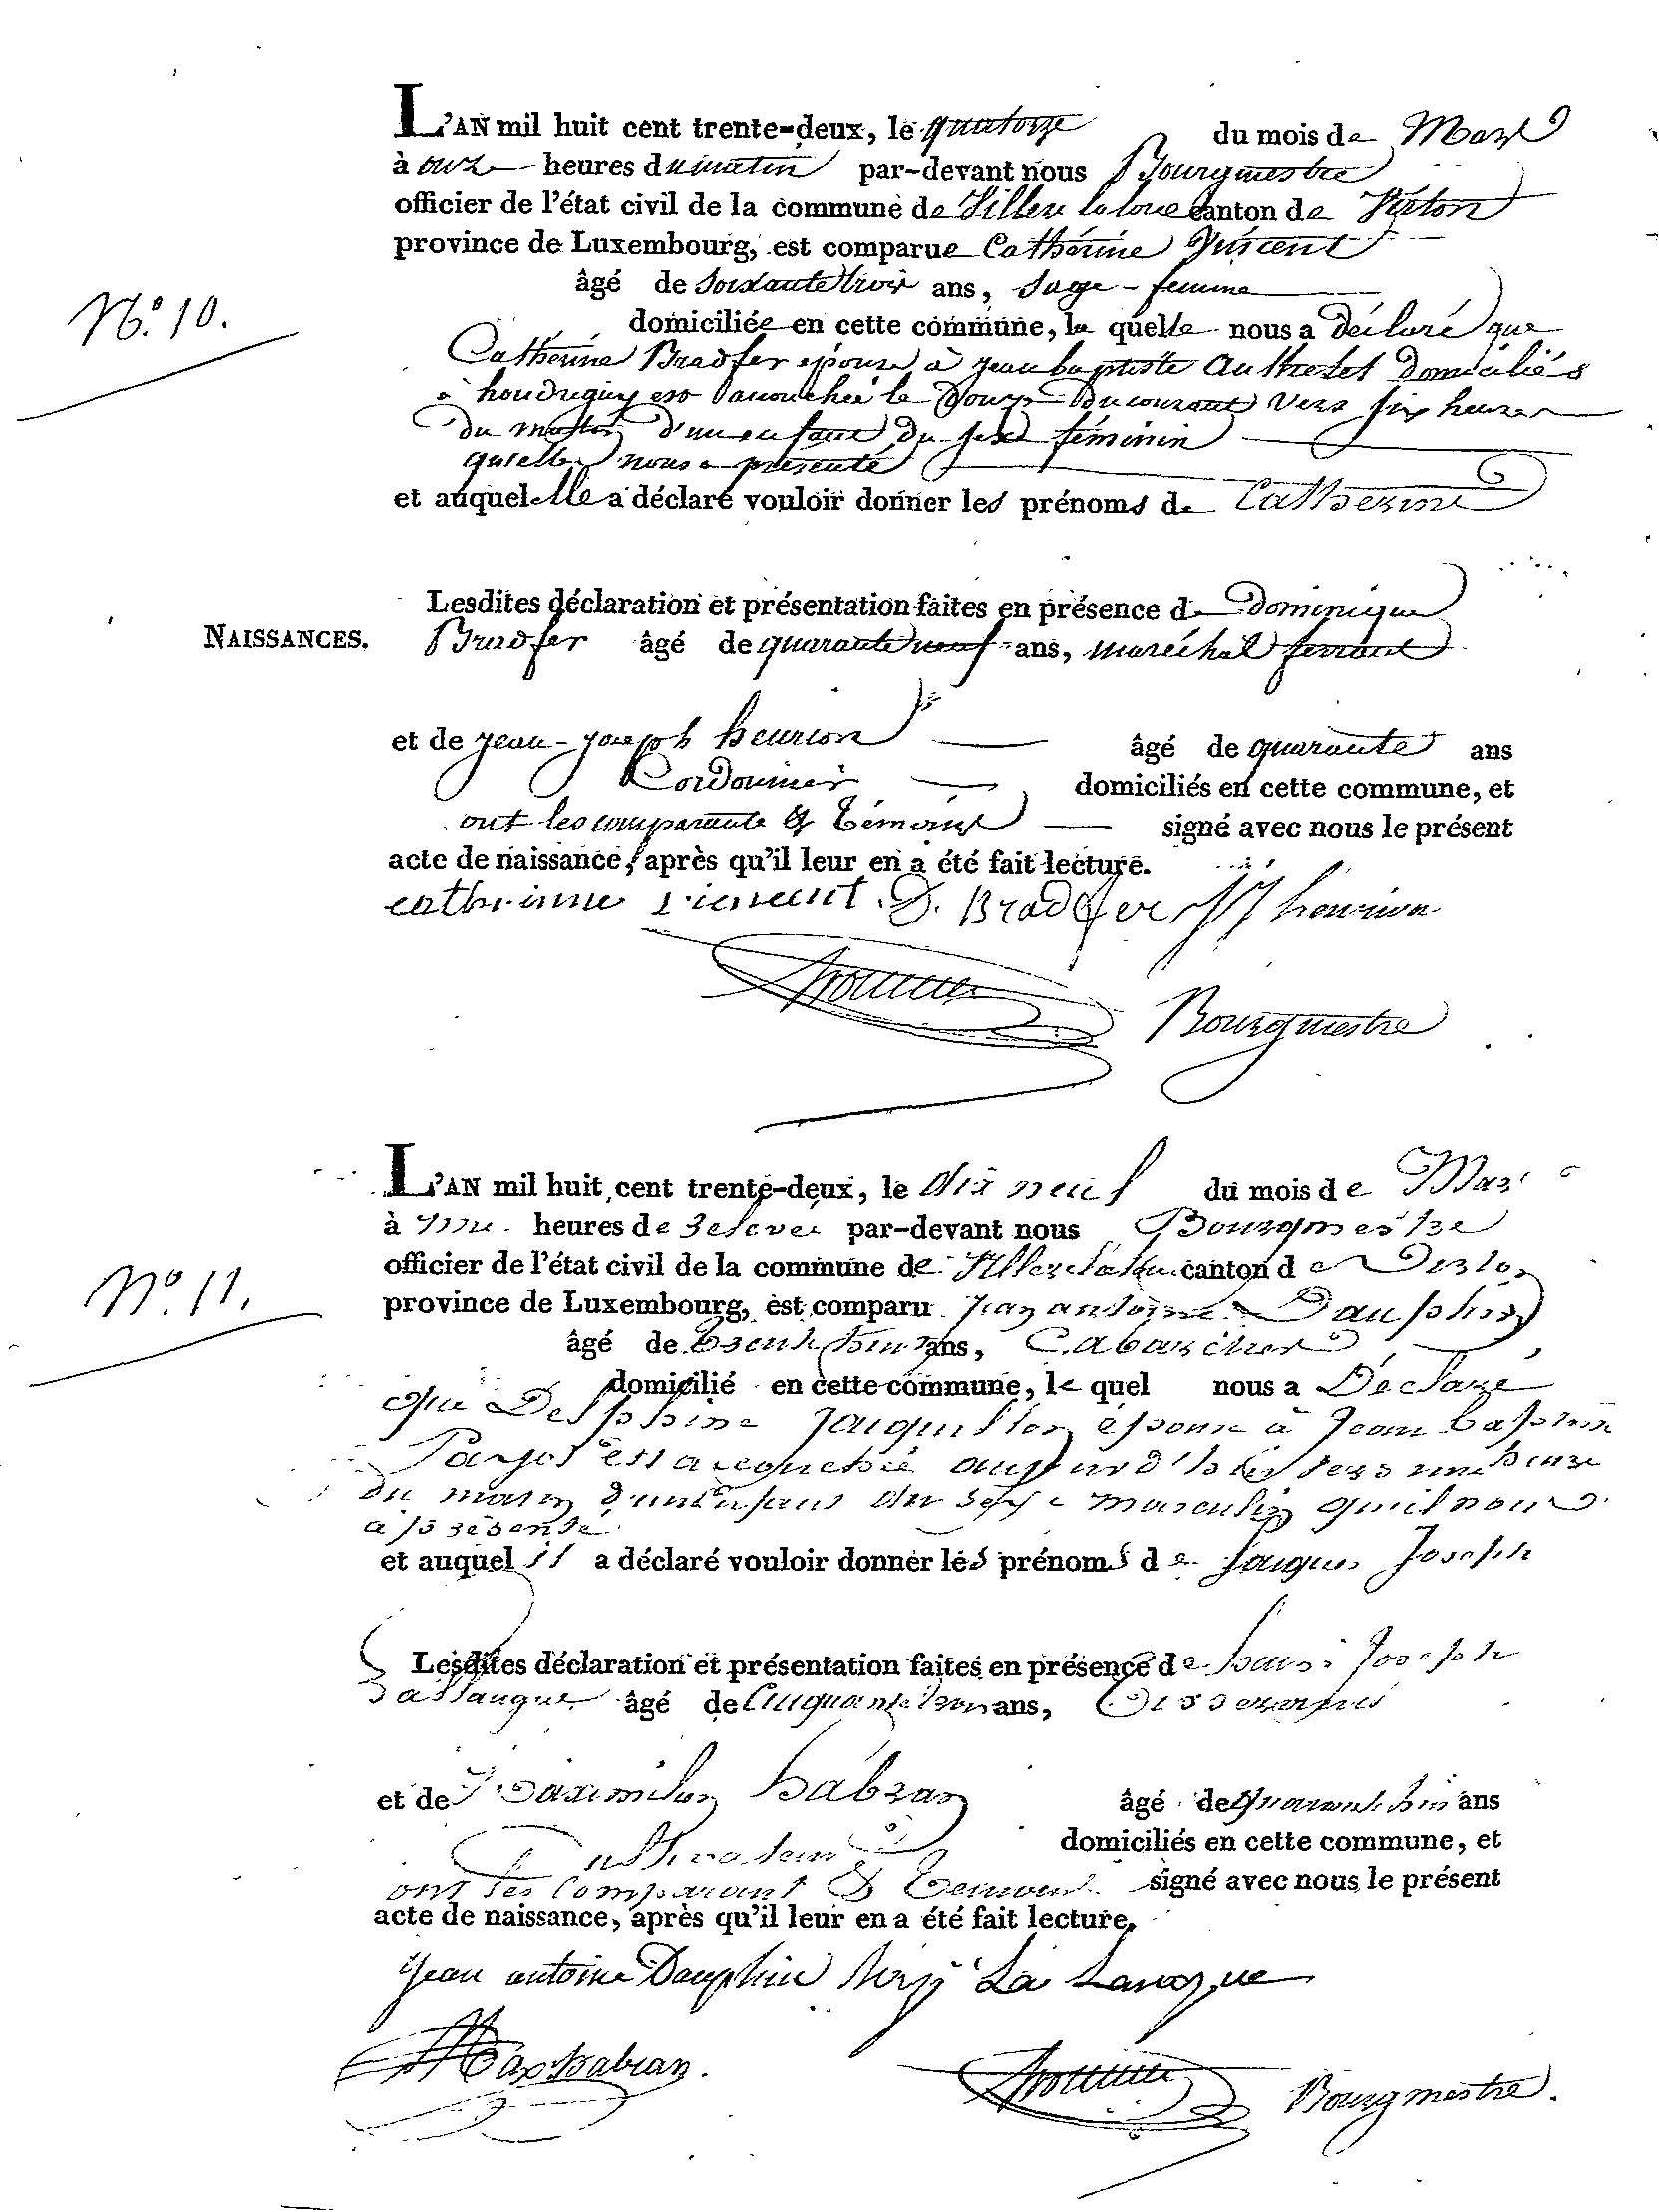 L'AN mil huit cent trente-deux, le quatorze du mois de Mars
à onze heures du matin par-devant nous Bourgmestre
officier de l'état civil de la commune de Villers la loue canton de Virton
province de Luxembourg, est comparue Cathérine Vincent
âgé de soixante trois ans, sage-femme
N.º 10.
domiciliée en cette commune, la quelle nous a déclaré que
Cathérine Bradfer épouse à jean baptiste Authelet domiciliés
à houdrigny est accouchée le douze du courant vers six heures
du matin d'un enfant du sexe féminin
qu'elle nous a présenté
et auquel elle a déclaré vouloir donner les prénoms de Catherine
Lesdites déclaration et présentation faites en présence de Dominique
NAISSANCES.
Bradfer âgé de quarante neuf ans, maréchal ferrant
et de jean-joseph henrion âgé de quarante ans
Cordonnier domiciliés en cette commune, et
ont les comparante & témoins signé avec nous le présent
acte de naissance, après qu'il leur en a été fait lecture.
catherinne vincent D. Bradfer JJ henrion
Bourgmestre
L'AN mil huit cent trente-deux, le dix neuf du mois de Mars
à heures de relevée par-devant nous Bourgmestre
officier de l'état civil de la commune de Villers canton de Virton
N.º 11.
province de Luxembourg, est comparu jean antoine Dauphin
âgé de trente ans, Cabaretier
domicilié en cette commune, le quel nous a Déclaré
que Delphine épouse à jean baptiste
est accouchée aujourd'hui vers une heure
du matin d'un enfant du sexe masculin qu'il nous
a présenté
et auquel il a déclaré vouloir donner les prénoms de jaques Joseph
Lesdites déclaration et présentation faites en présence de Joseph
âgé de Cinquante ans, Tisserand
et de Maximilien habran âgé de quarante ans
Cultivateur domiciliés en cette commune, et
ont les comparant & Temoins signé avec nous le présent
acte de naissance, après qu'il leur en a été fait lecture.
jean antoine Dauphin
Max habran.
Bourgmestre.